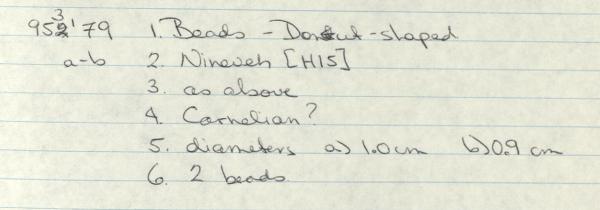 953'79 1. Beads - Donut-shaped
a-b 2. Nineveh [H15]
3. as above
4. Carnelian?
5. diameters a) 1.0 cm b) 0.9 cm
6. 2 beads